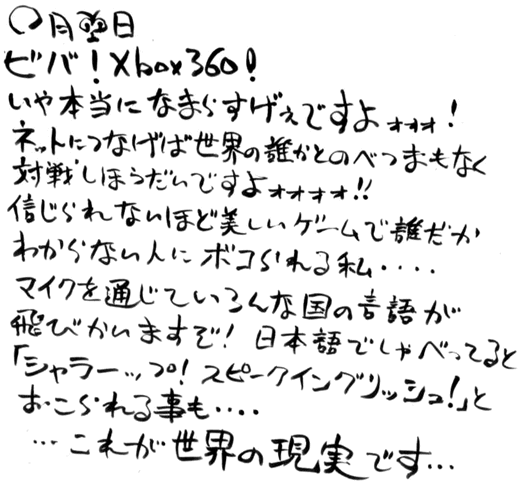 〇月曜日
ビバ！Xbox360！
いや本当になまらすげぇですよォォォ！
ネットにつなげば世界の誰かとのべつまもなく
対戦しほうだいですよォォォォ!!
信じられないほど美しいゲームで誰だか
わからない人にボコられる私・・・・
マイクを通じていろんな国の言語が
飛びかいますぞ！日本語でしゃべってると
「シャラーップ！スピークイングリッシュ！」と
おこられる事も・・・・
…これが世界の現実です…